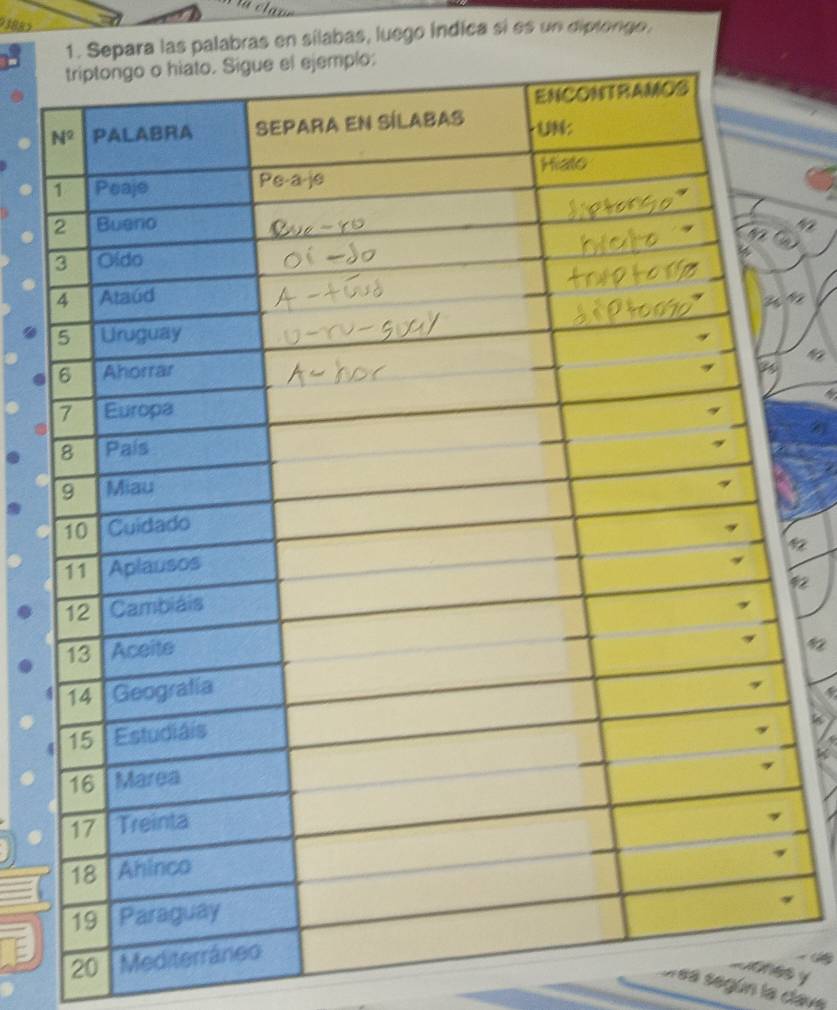 1. Separa las palabras en sílabas, luego indica si es un diptongo,
triptongo o hiato. Sigue el ejemplo:
Nº PALABRA SEPARA EN SÍLABAS ENCONTRAMOS UN:
1 Peaje Pe-a-je Hiato
2 Bueno diptongo
3 Oído Oi-do hiato
4 Ataúd triptongo
5 Uruguay U-ru-guay diptongo
6 Ahorrar A-hor
7 Europa
8 País
9 Miau
10 Cuidado
11 Aplausos
12 Cambiáis
13 Aceite
14 Geografía
15 Estudiáis
16 Marea
17 Treinta
18 Ahínco
19 Paraguay
20 Mediterráneo
según la clave